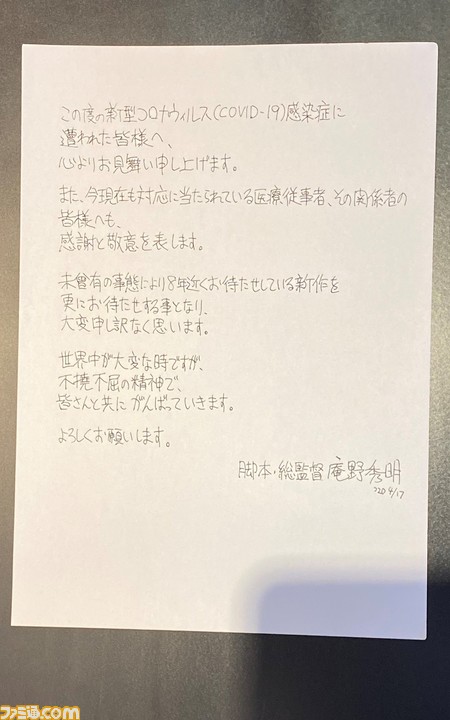 この度の新型コロナウィルス(COVID-19)感染症に
遭われた皆様へ、
心よりお見舞い申し上げます。
また、今現在も対応に当たられている医療従事者、その関係者の
皆様へも、
感謝と敬意を表します。
未曾有の事態により8年近くお待たせしている新作を
更にお待たせする事となり、
大変申し訳なく思います。
世界中が大変な時ですが、
不撓不屈の精神で、
皆さんと共にがんばっていきます。
よろしくお願いします。
脚本・総監督 庵野秀明
'20 4/17
ファミ通.com